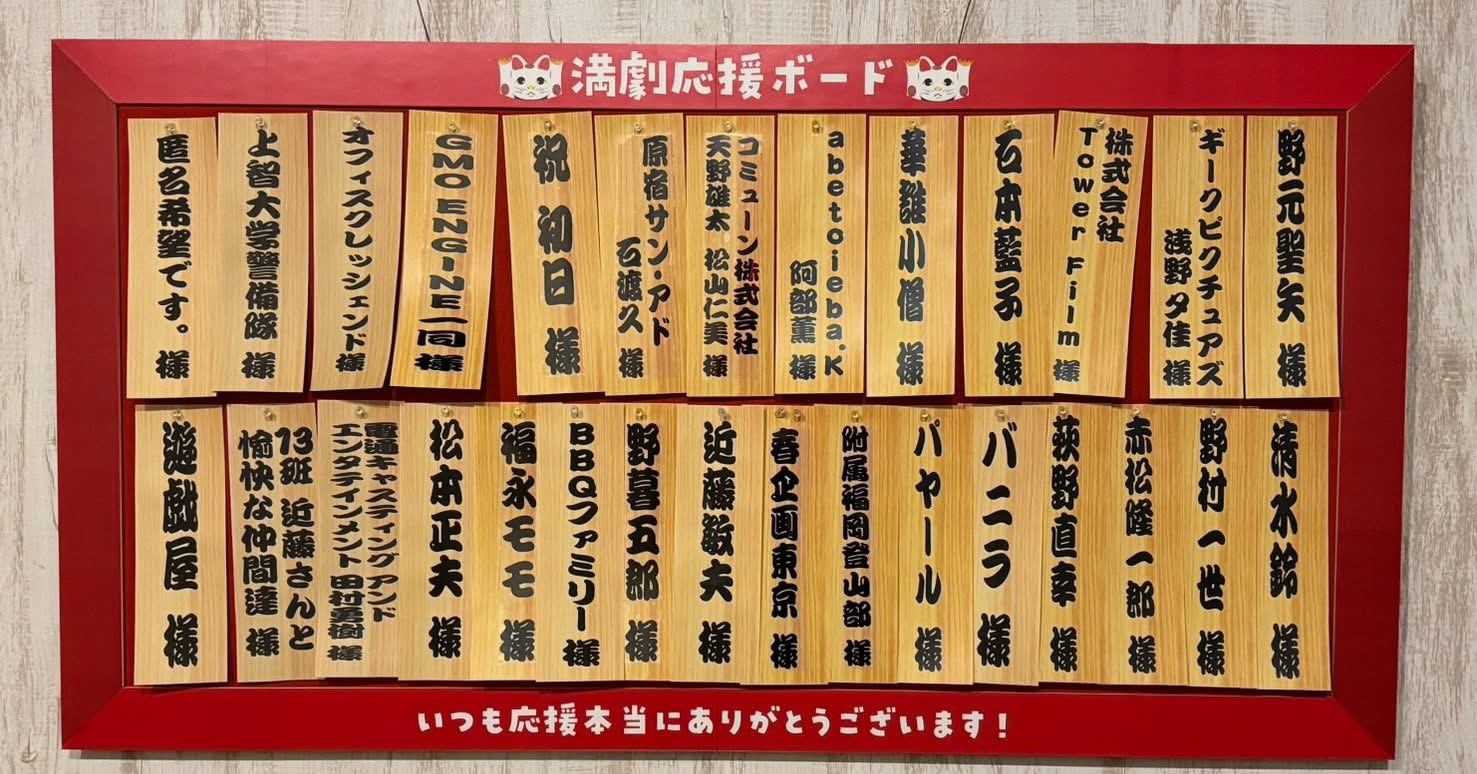 満劇応援ボード
野元聖矢 様
ギークピクチュアズ
浅野夕佳 様
株式会社
Tower Film 様
石本藍子 様
華雛小僧 様
abetoieba.K
阿部薫 様
コミューン株式会社
天野雄太 松山仁美 様
原宿サン・アド
石渡久 様
祝 初日 様
GMO ENGINE一同 様
オフィスクレッシェンド 様
上智大学警備隊 様
匿名希望です。 様
清水鈴 様
野村一世 様
赤松隆一郎 様
荻野直幸 様
バニラ 様
パヤール 様
附属福岡登山部 様
春企画東京 様
近藤敏夫 様
野暮五郎 様
BBQファミリー 様
福永モモ 様
松本正夫 様
電通キャスティング アンド
エンタテインメント 田村勇樹 様
13班 近藤さんと
愉快な仲間達 様
遊戯屋 様
いつも応援本当にありがとうございます！